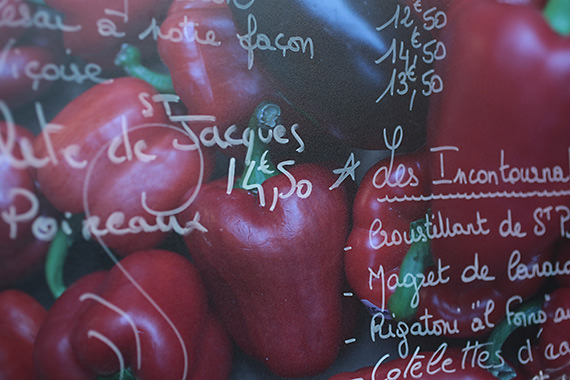 à notre façon
12€50
14€50
çoise
13€,50
lete de ST Jacques
Poireaux
14€,50
☆ Les Incontourna
- Croustillant de ST P
- Magret de Canar
- Rigatoni "al Forno" au
Côtelettes d'a